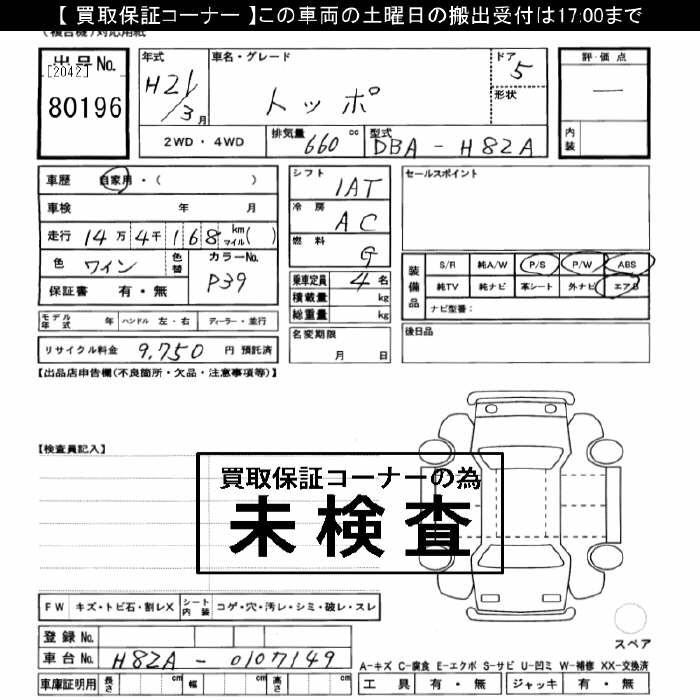 【 買取保証コーナー 】この車両の土曜日の搬出受付は17:00まで
(複合機)対応用紙
出品No.
[2042]
80196
年式
H21/3月
車名・グレード
トッポ
ドア
5
形状
評価点
—
内装
2WD・4WD
排気量 660 cc
型式 DBA - H82A
車歴 自家用・( )
車検 年 月
走行 14万4千168 km マイル( )
色 ワイン
色替
カラーNo. P39
保証書 有・無
シフト IAT
冷房 AC
燃料 G
乗車定員 4名
積載量 kg
総重量 kg
セールスポイント
装備品
S/R 純A/W P/S P/W ABS
純TV 純ナビ 革シート 外ナビ エアB
ナビ型番:
モデル年式 年 ハンドル 左・右 ディーラー・並行
リサイクル料金 9,750 円 預託済
名変期限
月 日
後日品
【出品店申告欄(不良箇所・欠品・注意事項等)】
【検査員記入】
買取保証コーナーの為
未検査
FW キズ・トビ石・割レX シート内装 コゲ・穴・汚レ・シミ・破レ・スレ
スペア
登録No.
車台No. H82A - 0107149
A-キズ C-腐食 E-エクボ S-サビ U-凹ミ W-補修 XX-交換済
車庫証明用 長さ cm 幅 cm 高さ cm
工具 有・無 ジャッキ 有・無